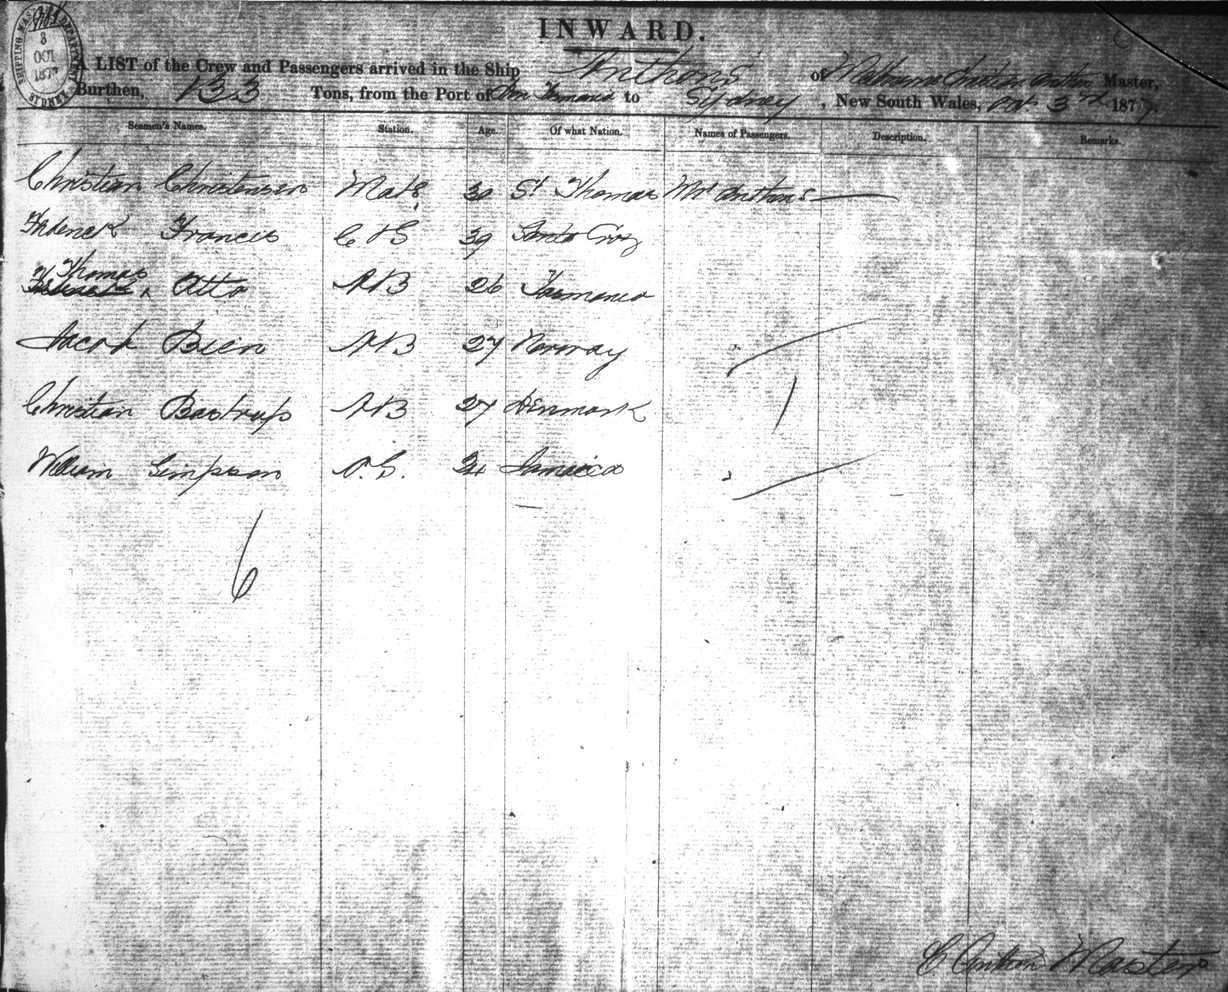 SHIPPING MASTER'S
3
OCT
1877
SYDNEY
INWARD.
A LIST of the Crew and Passengers arrived in the Ship Anthons of Master,
Burthen, 133 Tons, from the Port of to Sydney, New South Wales, Oct 3rd 1877.
Seamen's Names. Station. Age. Of what Nation. Names of Passengers. Description. Remarks.
Christian Christensen Mate 30 St Thomas Mrs Anthons
Frederick Francis C & S 39 Santa Cruz
Thomas Otto AB 26 Tasmania
Jacob Bien AB 27 Norway
Christian Bastrup AB 27 Denmark
William Simpson O.S. Jamaica
1
6
Master